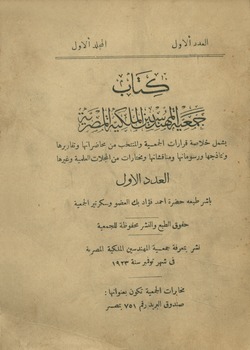 العدد الأول المجلد الأول
كتاب
جمعية المهندسين الملكية المصرية
يشمل خلاصة قرارات الجمعية والمنتخب من محاضراتها وتقاريرها
ونماذجها ورسوماتها ومناقشاتها ومختارات من المجلات العلمية وغيرها
العدد الاول
باشر طبعه حضرة احمد فؤاد بك العضو وسكرتير الجمعية
حقوق الطبع والنشر محفوظة للجمعية
نشر بمعرفة جمعية المهندسين الملكية المصرية
في شهر نوفمبر سنة ١٩٢٣
مخابرات الجمعية تكون بعنوانها :
صندوق البريد رقم ٧٥١ بمصر